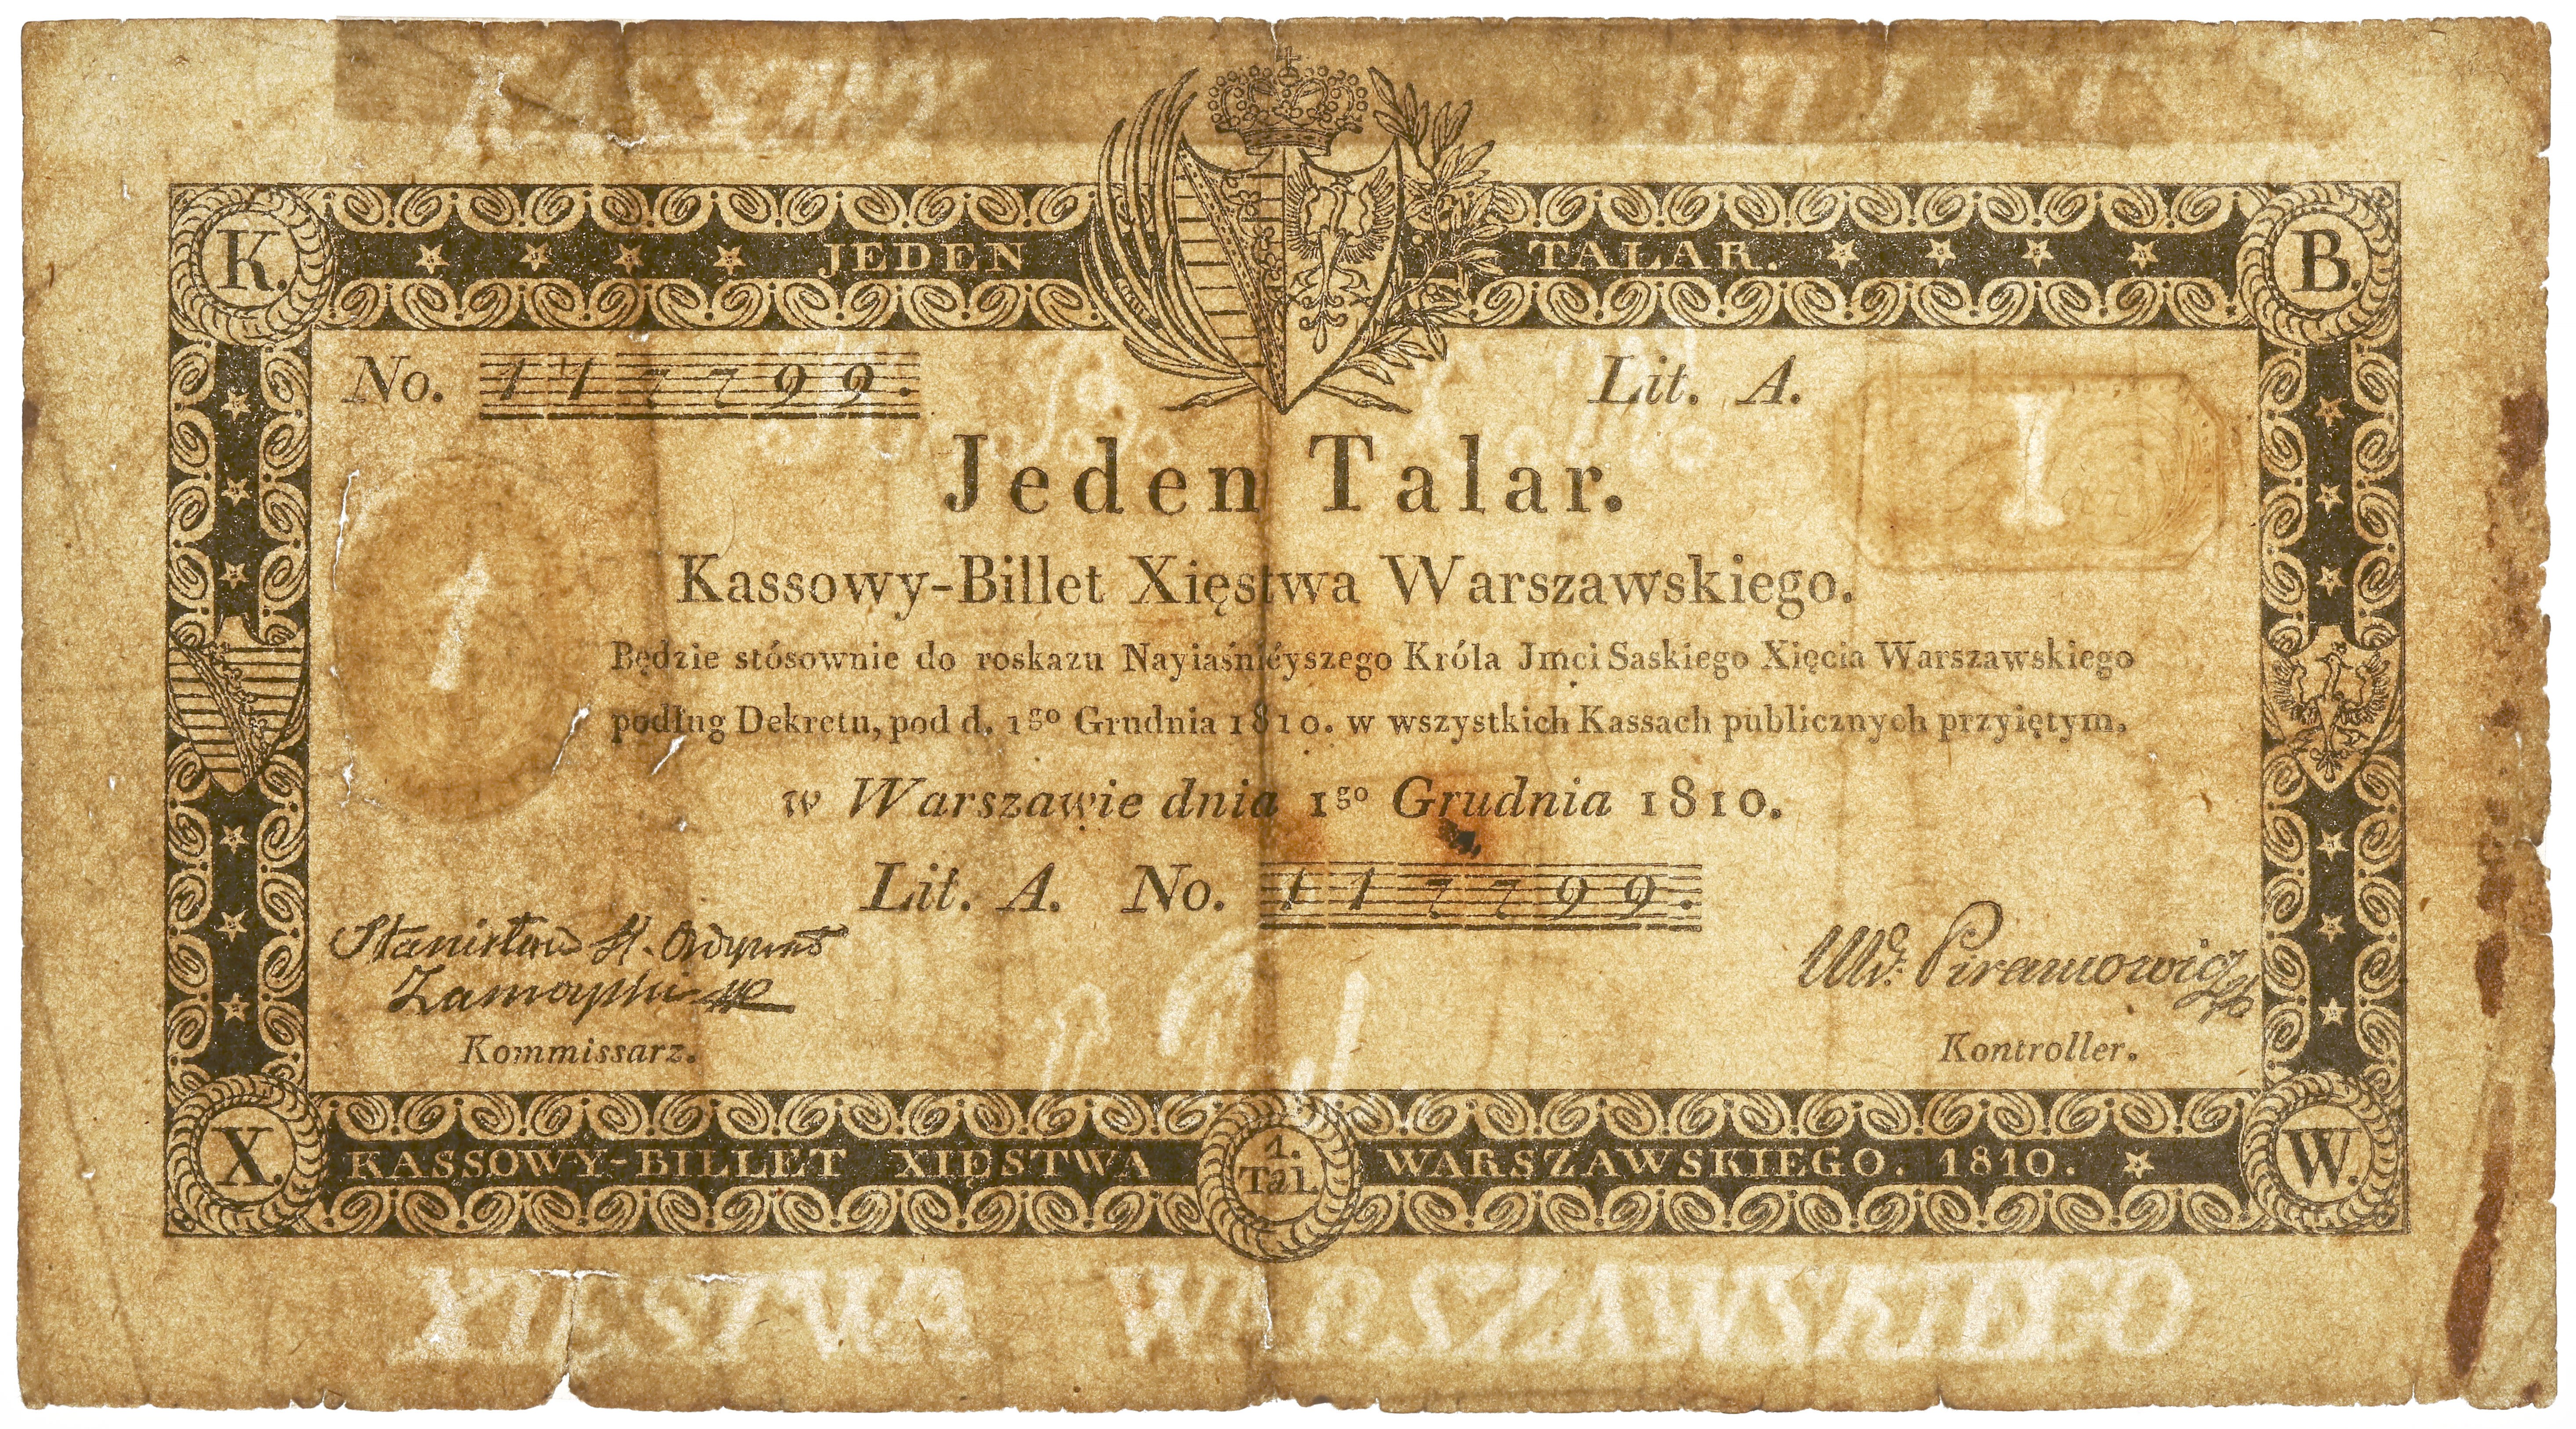 KASSOWY BILLET
K. JEDEN TALAR. B.
No. 117799. Lit. A.
Jeden Talar.
I
Kassowy-Billet Xięstwa Warszawskiego.
1
Będzie stósownie do roskazu Nayiaśnieyszego Króla Jmci Saskiego Xięcia Warszawskiego
podług Dekretu, pod d. 1go Grudnia 1810. w wszystkich Kassach publicznych przyiętym.
w Warszawie dnia 1go Grudnia 1810.
Lit. A. No. 117799.
Stanisław H. Ordynat
Zamoyski
Piramowicz
Kommissarz. Kontroller.
X. KASSOWY-BILLET XIĘSTWA 1. Tal. WARSZAWSKIEGO. 1810. W.
XIĘSTWA WARSZAWSKIEGO